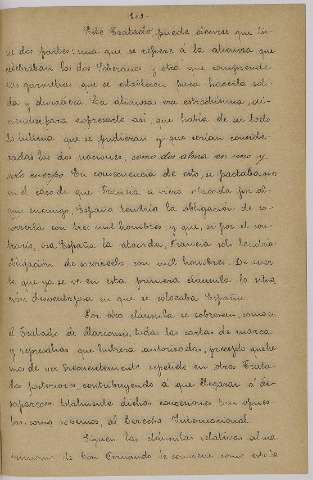 Este Tratado puede decirse que tie-
ne dos partes: una que se refiere á la alianza que
celebraban los dos Soberanos y otra que comprende
las garantias que se establecen para hacerla soli-
da y duradera. La alianza era estrechisima,
para expresarlo así que había de ser todo
lo intima que se pudieran y que serían conside-
radas las dos naciones, como dos almas en uno y
solo cuerpo. En consecuencia de esto, se pactaba
en el caso de que Francia se viera atacada por al-
gun enemigo, España tendría la obligación de so-
correrla con tres mil hombres y que, si por el con-
trario, era España la atacada, Francia solo tendría
obligación de socorrerla con mil hombres. De mo-
do que ya se ve en esta primera clausula la situa-
ción desventajosa en que se colocaba España.
Por otra clausula se sobreseen, como en
el Tratado de , todas las cartas de marca
y represalias que hubiera autorizadas, precepto que he-
mos de ver frecuentemente repetido en otros Trata-
dos posteriores contribuyendo á que llegaran á de-
saparecer totalmente dichas concesiones tan opues-
tas, como sabemos, al Derecho Internacional.
Siguen las clausulas relativas al ma-
trimonio de Don Fernando